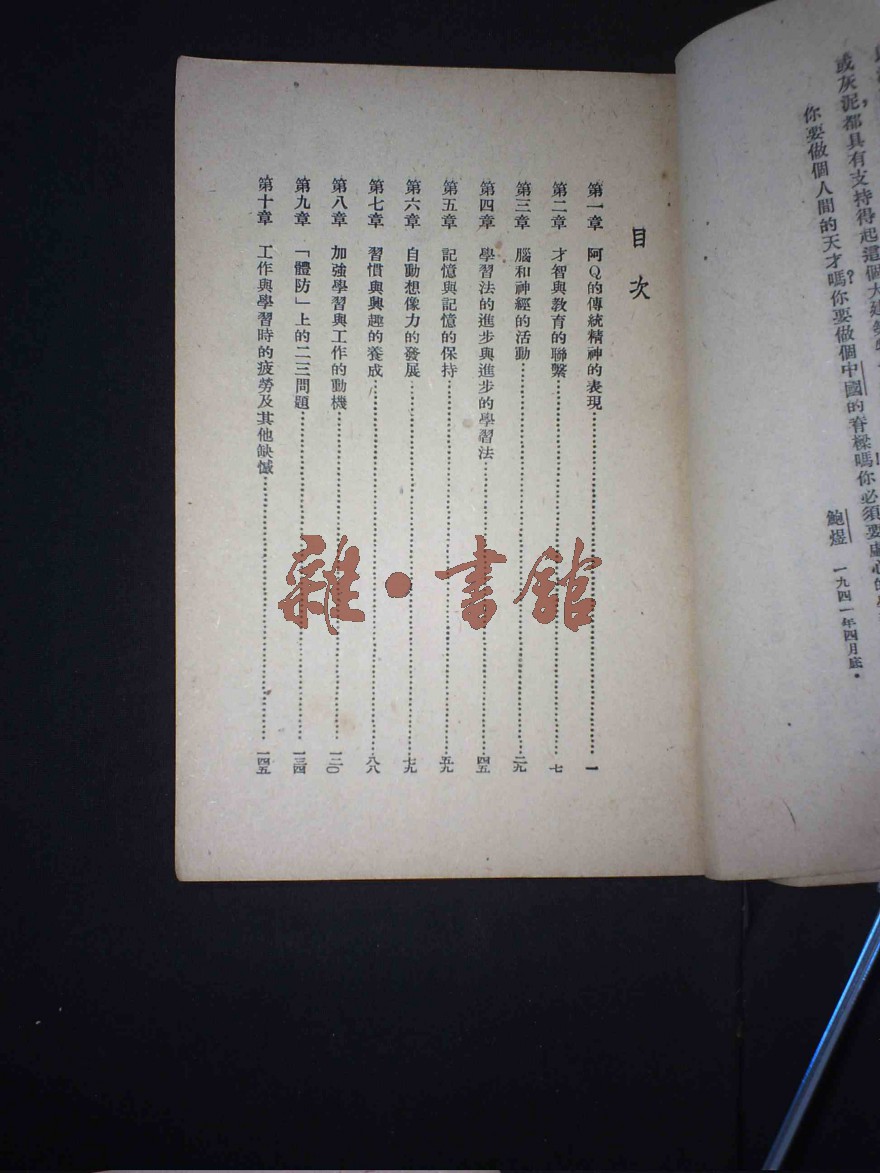 或灰泥都具有支持得起這個大建築物
你要做個人間的天才嗎？你要做個中國的脊樑嗎你必須要虛心的學
鮑煜 一九四一年四月底。
目次
第一章 阿Q的傳統精神的表現……一
第二章 才智與教育的聯繫……七
第三章 腦和神經的活動……二九
第四章 學習法的進步與進步的學習法……四五
第五章 記憶與記憶的保持……五九
第六章 自動想像力的發展……七九
第七章 習慣與興趣的養成……八八
第八章 加強學習與工作的動機……一二〇
第九章 「體防」上的二三問題……一三四
第十章 工作與學習時的疲勞及其他缺憾……一四五
雜·書館